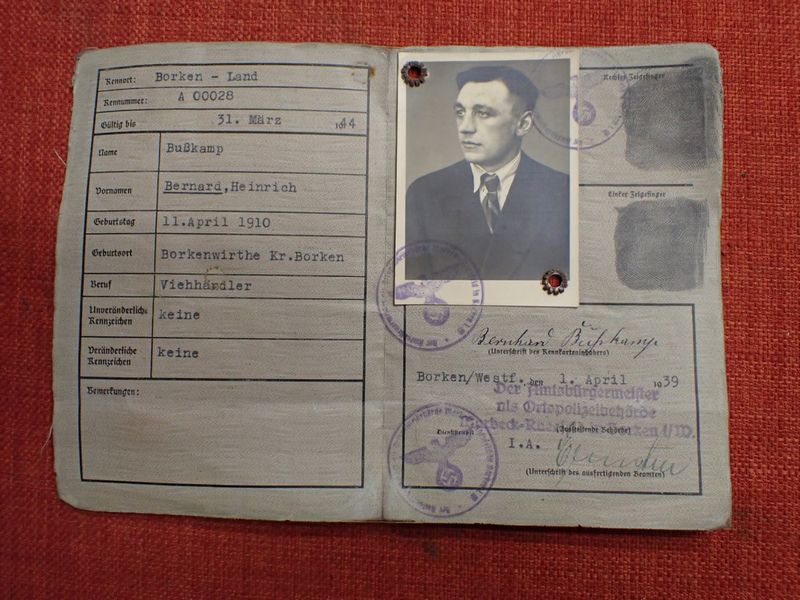 Kennort: Borken - Land
Kennummer: A 00028
Gültig bis 31. März 1944
Name Bußkamp
Vornamen Bernard, Heinrich
Geburtstag 11.April 1910
Geburtsort Borkenwirthe Kr.Borken
Beruf Viehhändler
Unveränderliche Kennzeichen keine
Veränderliche Kennzeichen keine
Bemerkungen:
Rechter Zeigefinger
Linker Zeigefinger
Bernhard Bußkamp
(Unterschrift des Kennkarteninhabers)
Borken/Westf., den 1. April 1939
Der Amtsbürgermeister
als Ortspolizeibehörde
i/W.
Dienststempel
(Ausstellende Behörde)
I.A.
(Unterschrift des ausfertigenden Beamten)